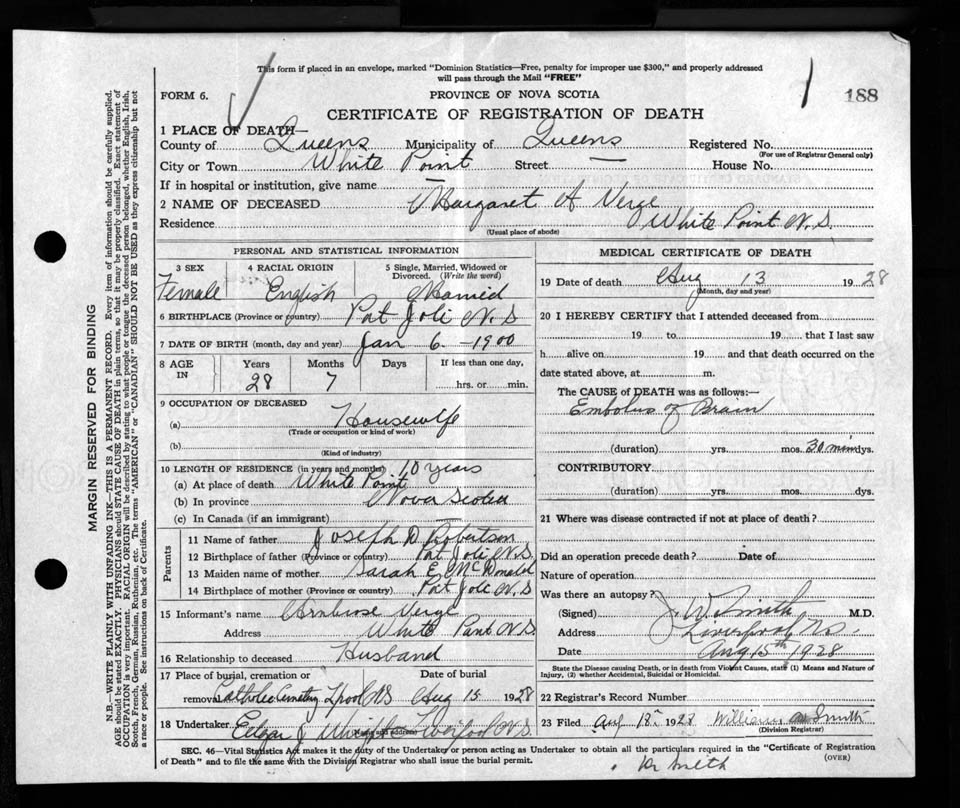 188
This form if placed in an envelope, marked "Dominion Statistics—Free, penalty for improper use $300," and properly addressed
will pass through the Mail "FREE"
FORM 6.
PROVINCE OF NOVA SCOTIA
188
CERTIFICATE OF REGISTRATION OF DEATH
1 PLACE OF DEATH—
County of Queens Municipality of Queens Registered No.
(For use of Registrar General only)
City or Town White Point Street — House No.
If in hospital or institution, give name —
2 NAME OF DECEASED Margaret A Verge
Residence White Point N.S.
(Usual place of abode)
PERSONAL AND STATISTICAL INFORMATION
3 SEX 4 RACIAL ORIGIN 5 Single, Married, Widowed or Divorced. (Write the word)
Female English Married
6 BIRTHPLACE (Province or country) Port Joli N.S
7 DATE OF BIRTH (month, day, and year) Jan 6 - 1900
8 AGE IN Years Months Days If less than one day,
28 7 hrs. or min.
9 OCCUPATION OF DECEASED
(a) Housewife
(Trade or occupation or kind of work)
(b)
(Kind of industry)
10 LENGTH OF RESIDENCE (in years and months) 10 years
(a) At place of death White Point
(b) In province Nova Scotia
(c) In Canada (if an immigrant) —
Parents
11 Name of father Joseph D Robertson
12 Birthplace of father (Province or country) Port Joli N.S.
13 Maiden name of mother Sarah E. McDonald
14 Birthplace of mother (Province or country) Port Joli N.S
15 Informant's name Ambrose Verge
Address White Point N.S.
16 Relationship to deceased Husband
17 Place of burial, cremation or removal Date of burial
Catholic Cemetery Lpool NS Aug 15 1928
18 Undertaker Edgar J Liverpool N.S.
(Name and address)
MEDICAL CERTIFICATE OF DEATH
19 Date of death Aug 13 1928
(Month, day and year)
20 I HEREBY CERTIFY that I attended deceased from
19 to 19 that I last saw
h alive on 19 and that death occurred on the
date stated above, at m.
The CAUSE OF DEATH was as follows:
Embolus of Brain
(duration) yrs. mos. 30 min dys.
CONTRIBUTORY
(duration) yrs. mos. dys.
21 Where was disease contracted if not at place of death?
Did an operation precede death? Date of
Nature of operation
Was there an autopsy?
(Signed) J. W. Smith M.D.
Address Liverpool NS.
Date Aug 15th 1928
State the Disease causing Death, or in death from Violent Causes, state (1) Means and Nature of
Injury, (2) whether Accidental, Suicidal or Homicidal.
22 Registrar's Record Number
23 Filed Aug 18 1928 William Smith
(Division Registrar)
SEC. 46—Vital Statistics Act makes it the duty of the Undertaker or person acting as Undertaker to obtain all the particulars required in the "Certificate of Registration
of Death" and to file the same with the Division Registrar who shall issue the burial permit.
(OVER)
Dr Smith
MARGIN RESERVED FOR BINDING
N.B.—WRITE PLAINLY WITH UNFADING INK—THIS IS A PERMANENT RECORD. Every item of information should be carefully supplied.
AGE should be stated EXACTLY. PHYSICIANS should STATE CAUSE OF DEATH in plain terms, so that it may be properly classified. Exact statement of
OCCUPATION is very important. RACIAL ORIGIN will be described by stating to what people or tongue the deceased person belonged, whether English, Irish,
Scotch, French, German, Russian, Ruthenian, etc. The terms "AMERICAN" or "CANADIAN" SHOULD NOT BE USED as they express citizenship but not
a race or people. See instructions on back of Certificate.